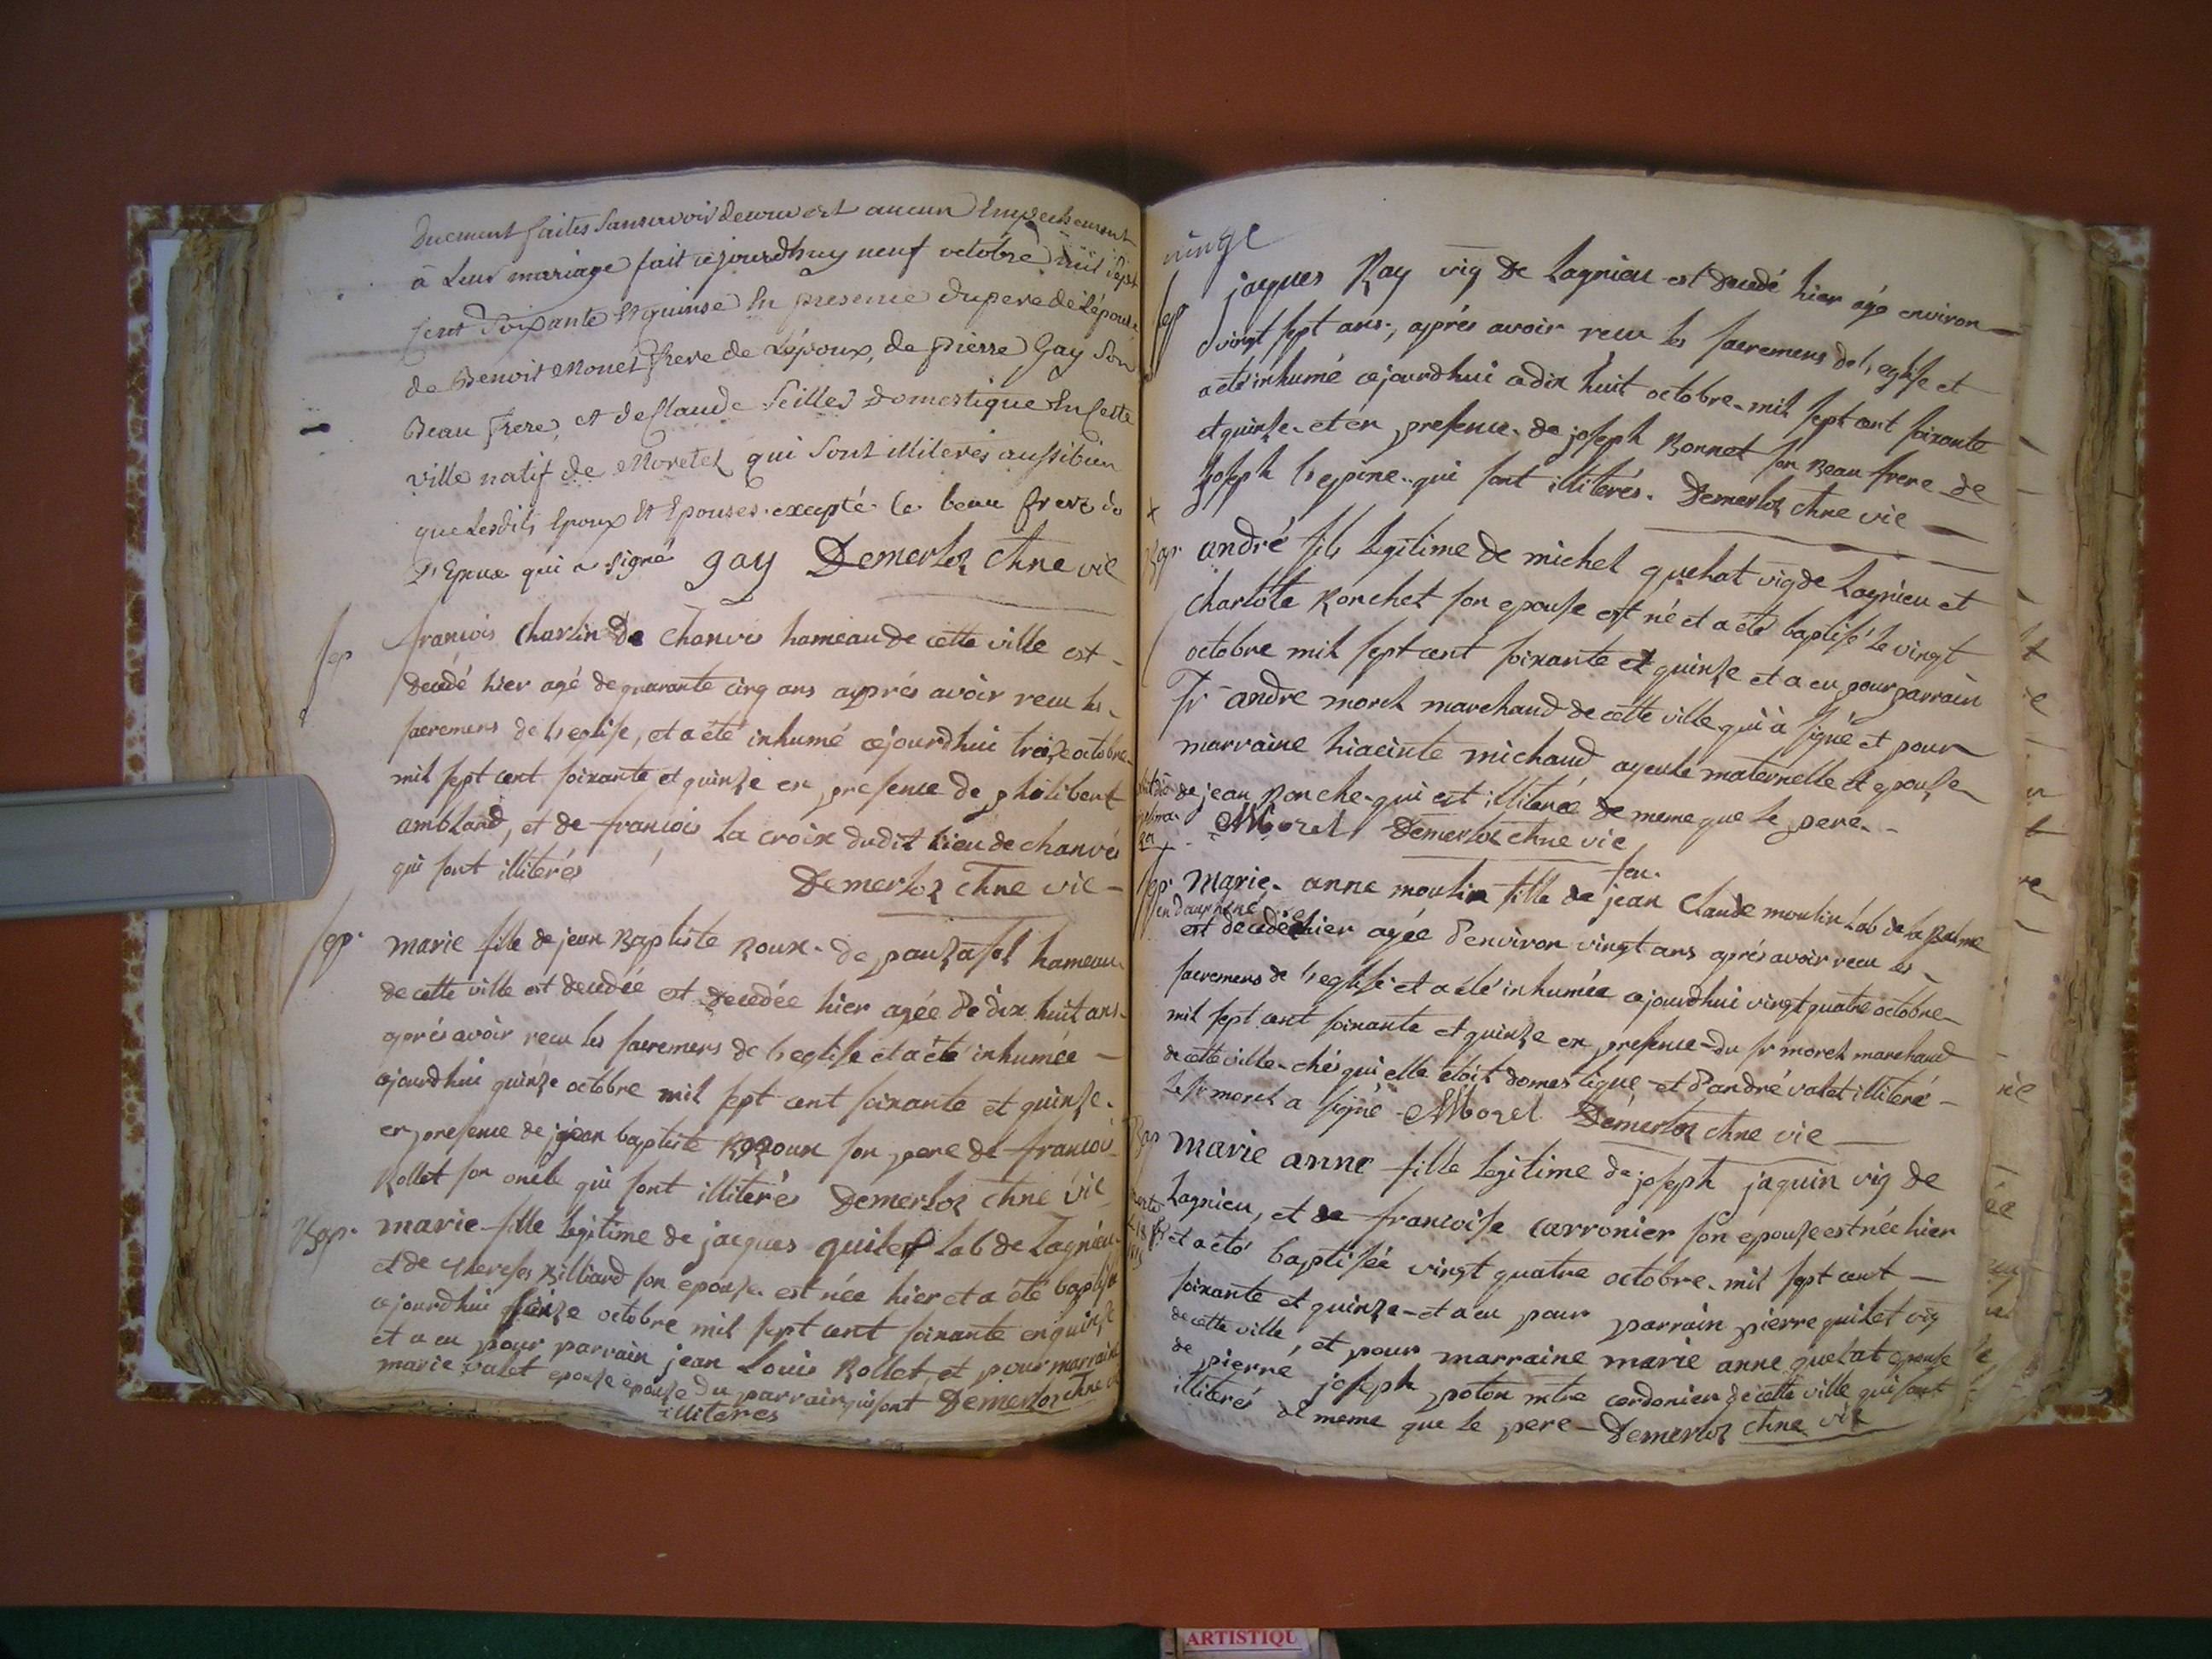 Duement faites sans avoir decouvert aucun Empechement
à Leur mariage fait cejourdhuy neuf octobre mil sept
cent Soixante et quinse En presence du pere de L'épouse
de Benoit Monet frere de L'époux, de pierre Gay Son
Beau frere, et de Claude Seilles Domestique En cette
ville natif de Moretel qui Sont illiterés aussibien
que Lesdits Epoux Et Epouses excepté le beau frere de
L'Epoux qui a signé gay Demerloz chne vic
sep françois Charlin de Chanves hameau de cette ville est
decedé hier agé de quarante cinq ans apprés avoir recu les
sacremens de l'eglise, et a été inhumé cejourdhui treize octobre
mil sept cent soixante et quinze en presence de philibert
amblard, et de françois La croix dudit Lieu de chanves
qui sont illiterés Demerloz chne vic
sep. marie fille de jean Baptiste Roux de hameau
de cette ville est decedée et decedée hier agée de dix huit ans
aprés avoir recu les sacremens de l'eglise et a été inhumée
cejourdhui quinze octobre mil sept cent soixante et quinze
en presence de jean baptiste Roux son pere de françois
Rollet son oncle qui sont illiterés Demerloz chne vic
Bap. marie fille legitime de jacques quilet Lab de Lagnieu
et de therese Billiard son epouse est née hier et a été baptisée
cejourdhui quinze octobre mil sept cent soixante en quinze
et a eu pour parrain jean Louis Rollet, et pour marraine
marie valet epouse epouse du parrain qui sont Demerloz chne vic
illiteres
sep jaques Ray vig de Lagnieu est decedé hier agé environ
vingt sept ans, aprés avoir recu les sacremens de l'eglise et
a été inhumé cejourdhui a dix huit octobre mil sept cent soixante
et quinze et en presence de joseph Bonnet son Beau frere de
joseph lespine qui sont illiterés. Demerloz chne vic
x
Bap andré fils legitime de michel quehat vig de Lagnieu et
charlote Ronchet son epouse est né et a été baptisé le vingt
octobre mil sept cent soixante et quinze et a eu pour parrain
Sr andre morel marchand de cette ville qui à signé et pour
marraine hiacinte michaud ayeule maternelle et epouse
de jean Ronche qui est illiterée de meme que le pere
AMorel Demerloz chne vic
feu
sep. Marie anne moulin fille de jean Claude moulin Lab de la Balme
en dauphiné
est decedée hier agée d'environ vingt ans aprés avoir recu les
sacremens de l'eglise et a été inhumée cejourdhui vingt quatre octobre
mil sept cent soixante et quinze en presence du sr morel marchand
de cette ville chés qui elle étoit domestique et d'andré valet illiteré
le sr morel a signé AMorel Demerloz chne vic
Bap marie anne fille legitime de joseph jaquin vig de
Lagnieu, et de francoise carronier son epouse est née hier
et a été baptisée vingt quatre octobre mil sept cent
soixante et quinze et a eu pour parrain pierre quilet vig
de cette ville, et pour marraine marie anne quehat epouse
de pierre joseph poton mtre cordonier de cette ville qui sont
illiterés de meme que le pere Demerloz chne vic
ARTISTIQU